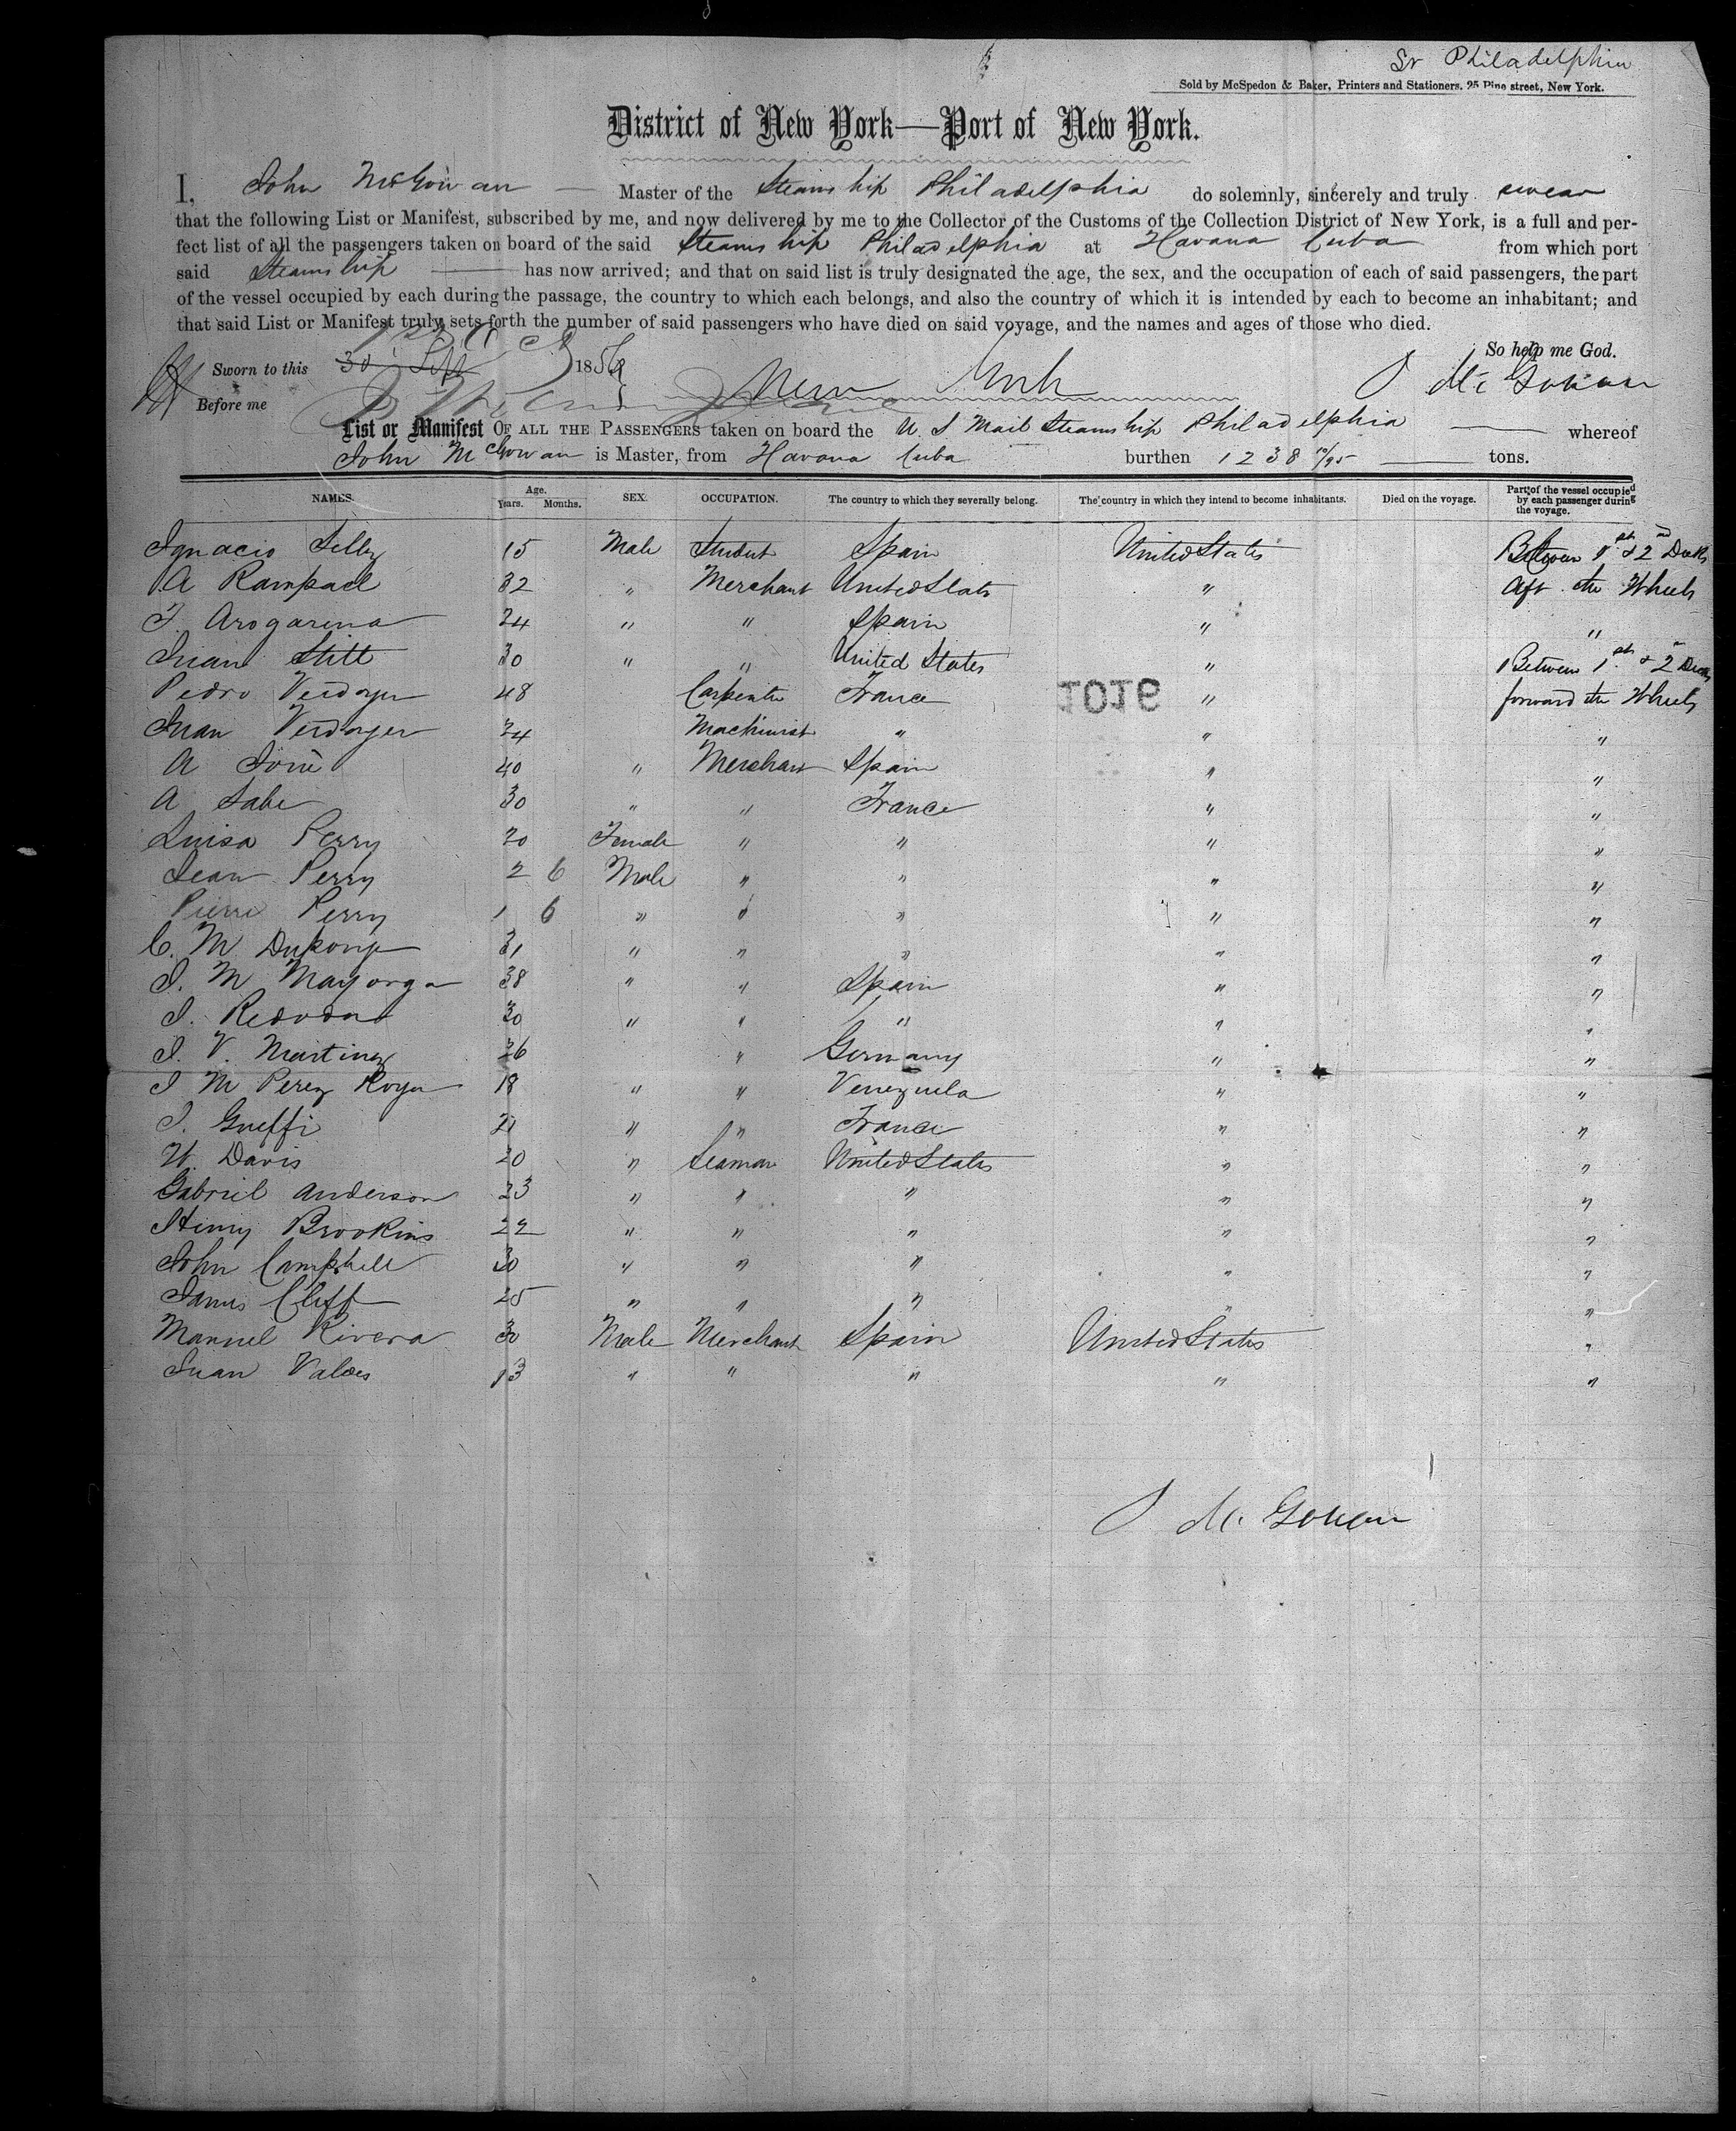 Sr Philadelphia
Sold by McSpedon & Baker, Printers and Stationers, 25 Pine street, New York.
District of New York—Port of New York.
I, John McGowan — Master of the Steam ship Philadelphia do solemnly, sincerely and truly swear
that the following List or Manifest, subscribed by me, and now delivered by me to the Collector of the Customs of the Collection District of New York, is a full and per-
fect list of all the passengers taken on board of the said Steam ship Philadelphia at Havana Cuba from which port
said Steam ship — has now arrived; and that on said list is truly designated the age, the sex, and the occupation of each of said passengers, the part
of the vessel occupied by each during the passage, the country to which each belongs, and also the country of which it is intended by each to become an inhabitant; and
that said List or Manifest truly sets forth the number of said passengers who have died on said voyage, and the names and ages of those who died.
So help me God.
Sworn to this 30 Sept 185
New York
J McGowan
Before me
List or Manifest OF ALL THE PASSENGERS taken on board the U. S Mail Steam ship Philadelphia — whereof
John McGowan is Master, from Havana Cuba burthen 1238 10/95 — tons.
NAMES. Age. Years. Months. SEX. OCCUPATION. The country to which they severally belong. The country in which they intend to become inhabitants. Died on the voyage. Part of the vessel occupied by each passenger during the voyage.
Ignacio 15 Male Student Spain United States Between 1st & 2n Decks
A 32 " Merchant United States " Aft the Wheels
F. Arogarena 24 " " Spain " "
Juan Stitt 30 " " United States " Between 1st & 2 Decks
Pedro Verdayer 48 Carpenter France " forward the Wheels
JOJS
Juan Verdayer 24 Machinist " " "
A 40 " Merchant Spain " "
A Sabe 30 " " France " "
Luisa Perry 20 Female " " " "
Jean Perry 2 6 Male " " " "
Pierre Perry 1 6 " " " " "
C. M. 31 " " " " "
J. M Mayorga 38 " " Spain " "
J. 30 " " " " "
J. V. Martinez 26 " Germany " "
J M Perez 18 " " Venezuela " "
J. Gueffi 21 " " France " "
W. Davis 20 " Seaman United States " "
Gabriel Anderson 23 " " " " "
Henry Brookins 22 " " " " "
John Campbell 30 " " " " "
James Cliff 25 " " " " "
Manuel Rivera 30 Male Merchant Spain United States "
Juan Valdes 13 " " " " "
J McGowan